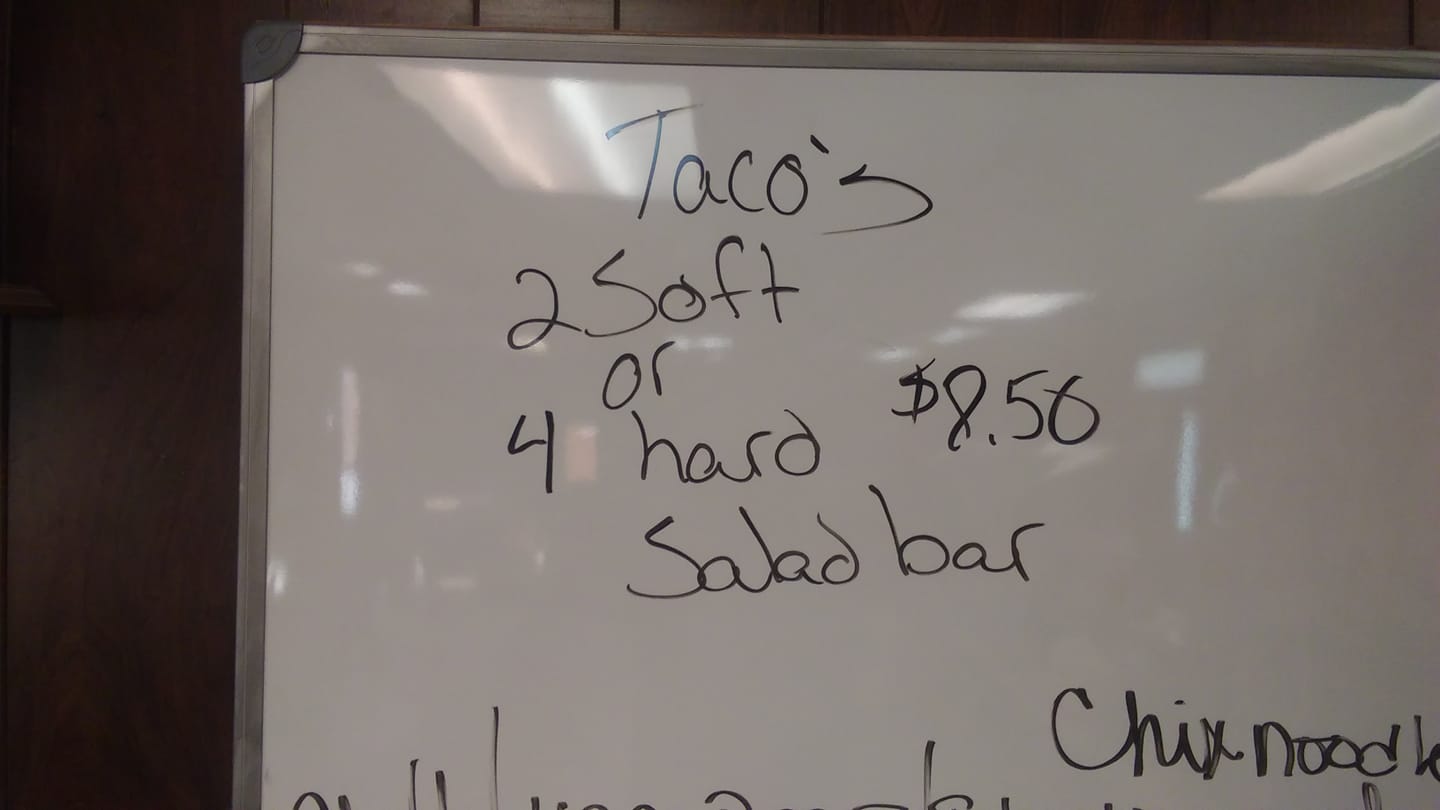 Taco's
2 Soft
or
4 hard $8.50
Salad bar
Chix